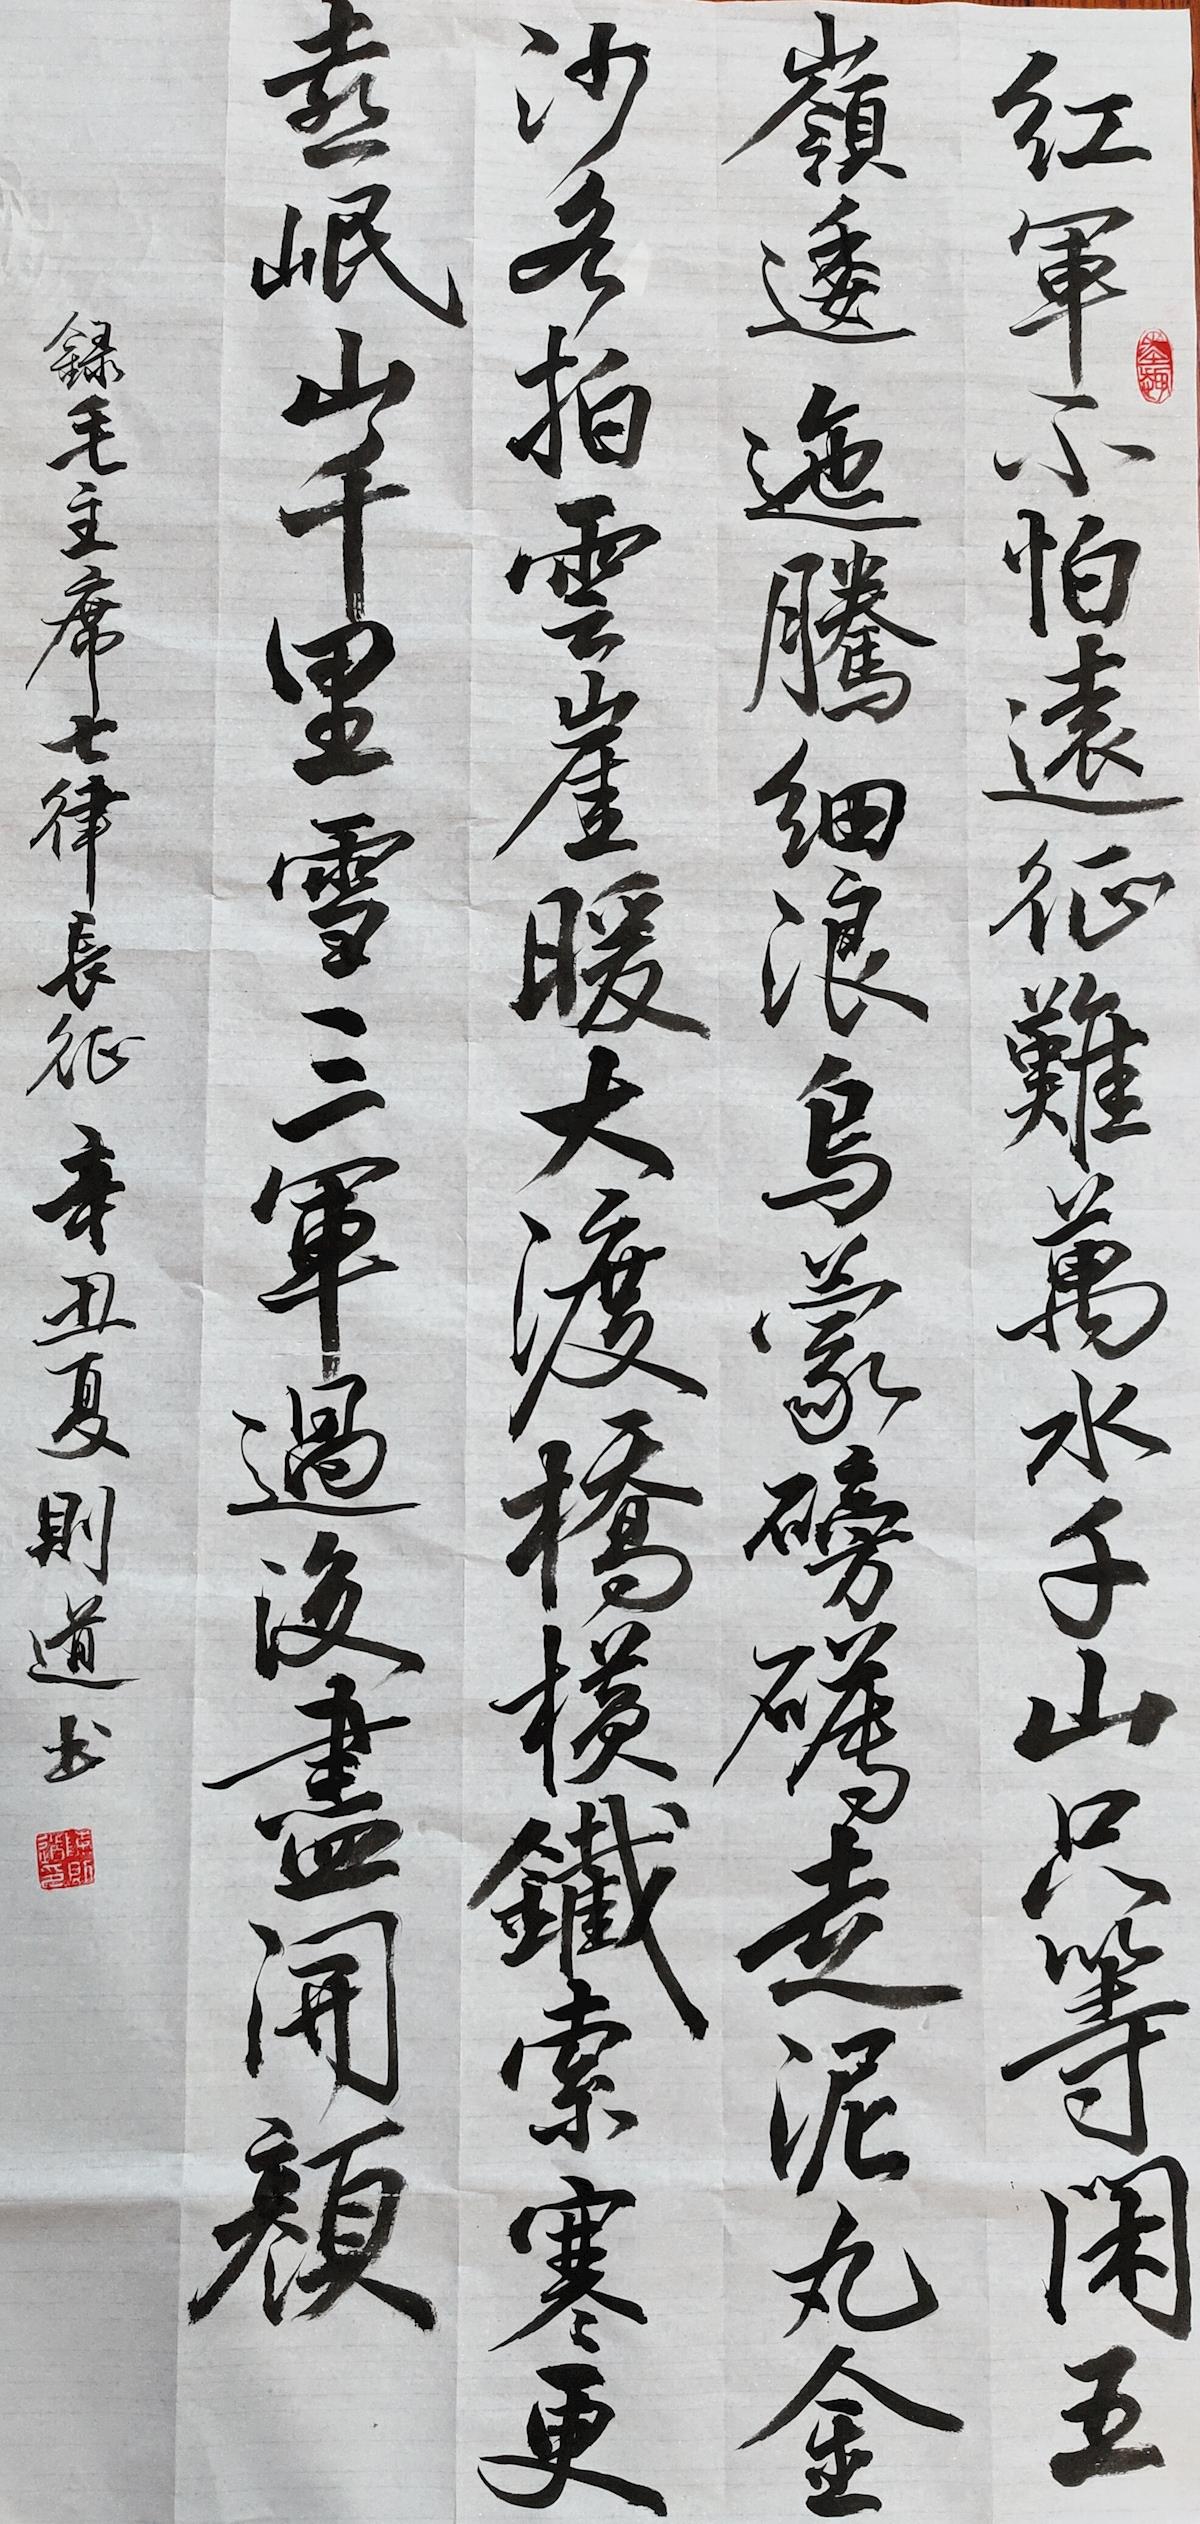 紅軍不怕遠征難萬水千山只等閑五
嶺逶迤騰細浪烏蒙磅礴走泥丸金
沙水拍雲崖暖大渡橋橫鐵索寒更
喜岷山千里雪三軍過後盡開顏
録毛主席七律長征 辛丑夏則道书